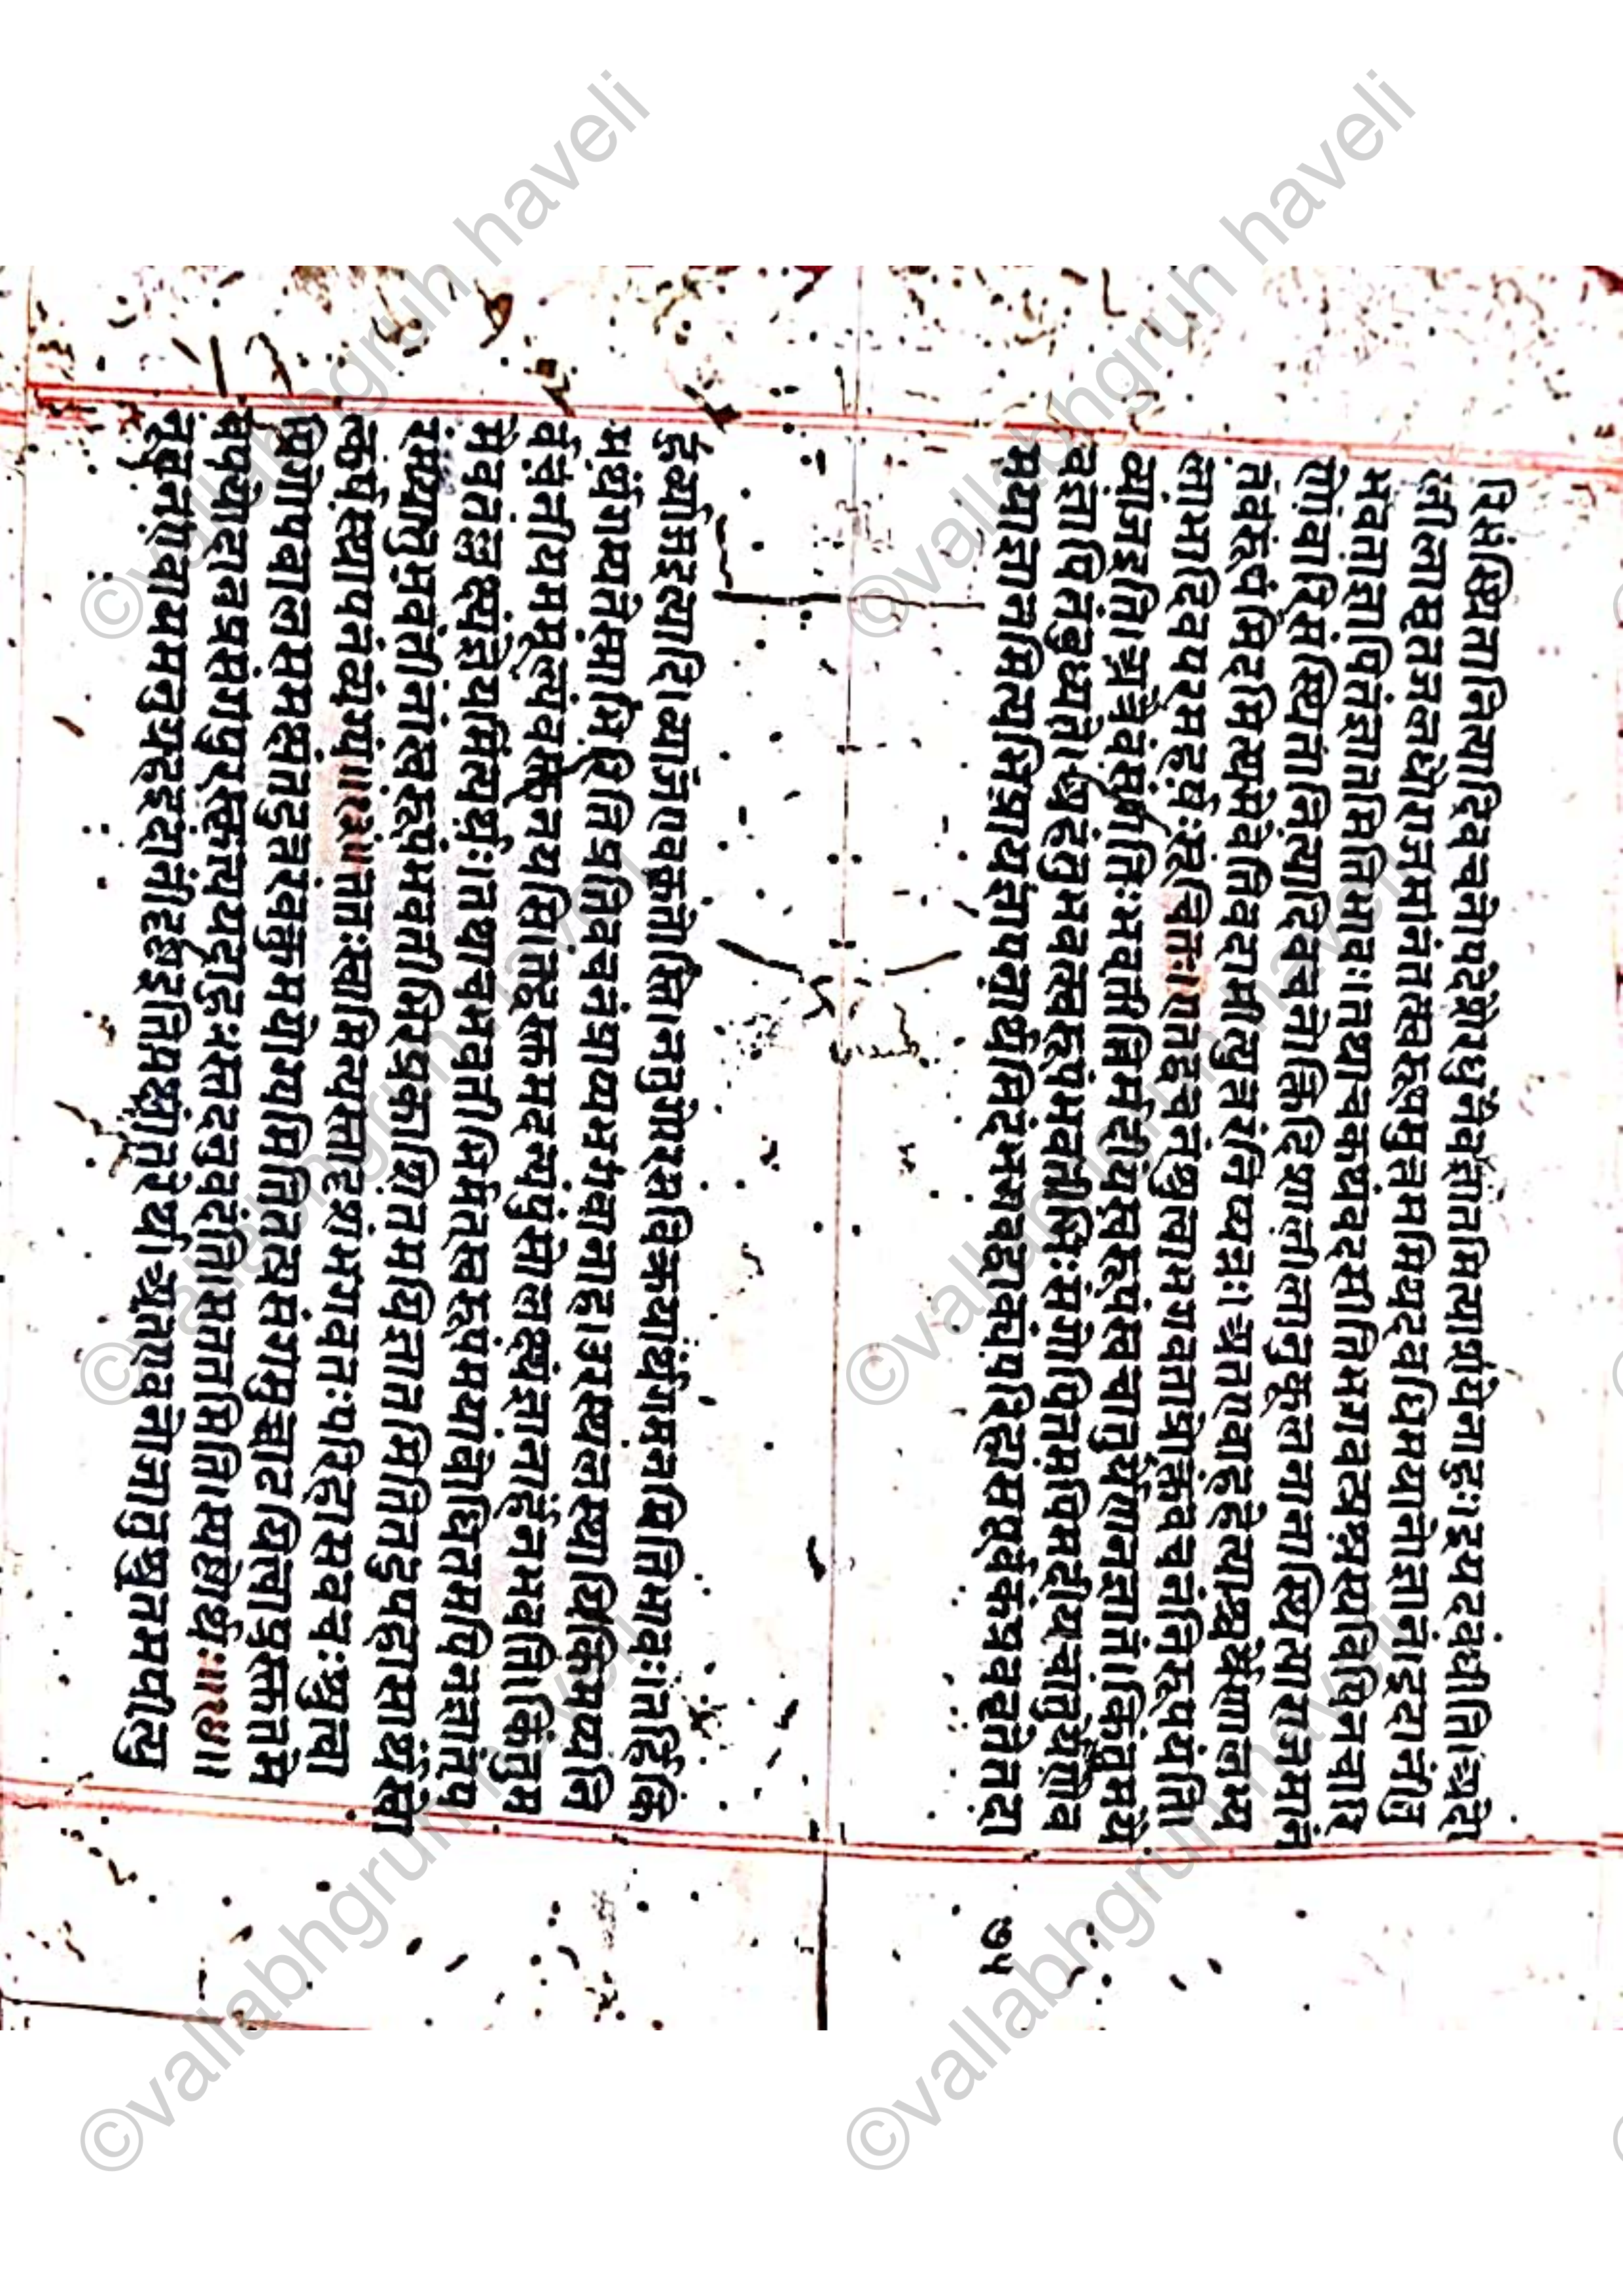 रिसंस्थितानित्यादिवचनोपदेशेरधुनैवज्ञातमित्याशयेनाहुः। इयदवधीति। अदो
लीलामृतजलधेरोजमानंतत्स्वरूपमुक्तमियदवधिमयानोज्ञानं। इदानींतु
भवताज्ञापितंज्ञातमितिभावः। तथाचकथंवदसीतिभगवत्प्रश्नस्यविपिनचारि
णोवारिसंस्थितानित्यादिवचनोक्तिदिशालीलानुकूलनानास्थित्याराजमानं
तवरूपमिदमित्यमेवेतिवदामीत्युत्तरंनिष्पन्नः। अतएवाहहेत्याश्चर्येणालभ्य
लाभादिवपरमहर्षःसूचितः। एतद्वचनंश्रुत्वाभगवताप्रोक्तवचनंनिरूपयंति।
व्याजइति। अत्रैवंसंगतिःभवतीभिर्मदीयस्वरूपंस्वचातुर्येणनज्ञातं। किंतुमयै
वज्ञापितंबुध्यते। अहंतुभवत्स्वरूपंभवतीभिःसंगोपितमपिमदीयचातुर्येणैव
मयाज्ञातमित्यभिप्रायज्ञापनार्थमिदंभगवद्वाक्यंपरिहासपूर्वकंप्रवर्त्ततेतदा
७५
ईर्ष्यामइत्यादि। व्याजएवकृतोस्ति। नतुगोरसविक्रयार्थंगमनमितिभावः। तर्हिकिं
मर्थंगम्यतेस्माभिरितिप्रतिवचनंप्रायमभगवानाह। उरस्थलस्थायिकिमप्यनि
र्वचनीयममूल्यंवस्तूनयसि। तद्वस्तुकमदन्यपुंसोलक्ष्यंज्ञानार्हंनभवति। किंतुम
मैवतल्लक्ष्यंज्ञेयमित्यर्थः। तथाचभवतीभिर्मत्स्वरूपंमयाबोधितमपिनज्ञातंप
रंमयातुभवतीनांस्वरूपंभवतीभिरप्रकाशितमपिज्ञातमितितदुपहासार्थेस्वो
त्कर्षःस्थापनंव्यंग्यं॥२३॥ततःस्वामिन्यस्तादृशंभगवतःपरिहासवचःश्रुत्वा
प्रियगोपबालसमक्षमेतदुत्तरंवक्तुमयोग्यमितितत्प्रसंगमुच्चाटयित्वाप्रकृतमे
वपयोदानप्रसंगंपुरस्कृत्ययदाहुःस्तदनुवदंति। सततमिति। स्पष्टोर्थः॥२४॥
नूत्नन्गोवायमनुग्रहइदानींहृष्टइतिपक्षांतरेर्थ। अतएवनोजातुश्रुतमपीत्यु